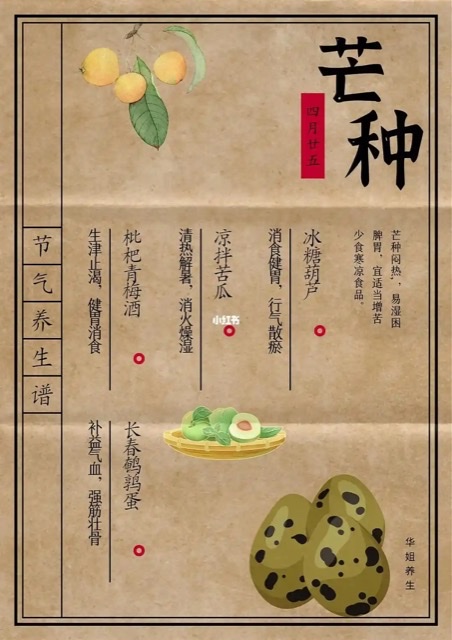 芒种
四月廿五
芒种闷热,易湿困
脾胃,宜适当增苦
少食寒凉食品。
冰糖葫芦
消食健胃,行气散瘀
凉拌苦瓜
清热解暑,消火燥湿
枇杷青梅酒
生津止渴,健胃消食
长春鹌鹑蛋
补益气血,强筋壮骨
节气养生谱
小红书
华姐养生